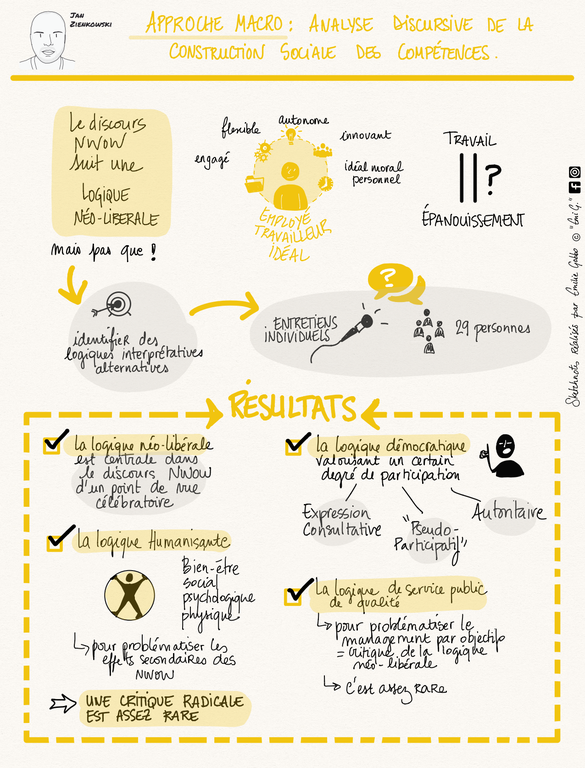 JAN
ZIENKOWSKI
APPROCHE MACRO : ANALYSE DISCURSIVE DE LA
CONSTRUCTION SOCIALE DES COMPÉTENCES.
Le discours
NWOW
suit une
LOGIQUE
NÉO-LIBERALE
mais pas que !
flexible
autonome
innovant
engagé
idéal moral
personnel
EMPLOYÉ
TRAVAILLEUR
IDÉAL
TRAVAIL
||?
ÉPANOUISSEMENT
identifier des
logiques interprétatives
alternatives
?
ENTRETIENS
INDIVIDUELS
29 personnes
Sketchnotes réalisés par Emilie Gobbo © "Emi G."
RÉSULTATS
la logique néo-libérale
est centrale dans
le discours NWOW
d'un point de vue
célébratoire
la logique Humanisante
Bien-être
social
psychologique
physique
pour problématiser les
effets secondaires des
NWOW
UNE CRITIQUE RADICALE
EST ASSEZ RARE
la logique démocratique
valorisant un certain
degré de participation
Expression
Consultative
"Pseudo-
Participatif"
Autoritaire
La logique de service public
de qualité
pour problématiser le
management par objectif
= critique de la logique
néo-libérale
c'est assez rare